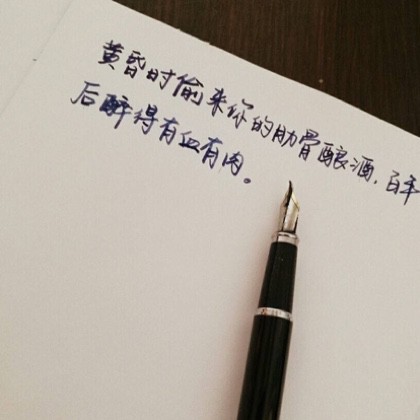 黄昏时偷来你的肋骨酿酒,百年
后醉得有血有肉。